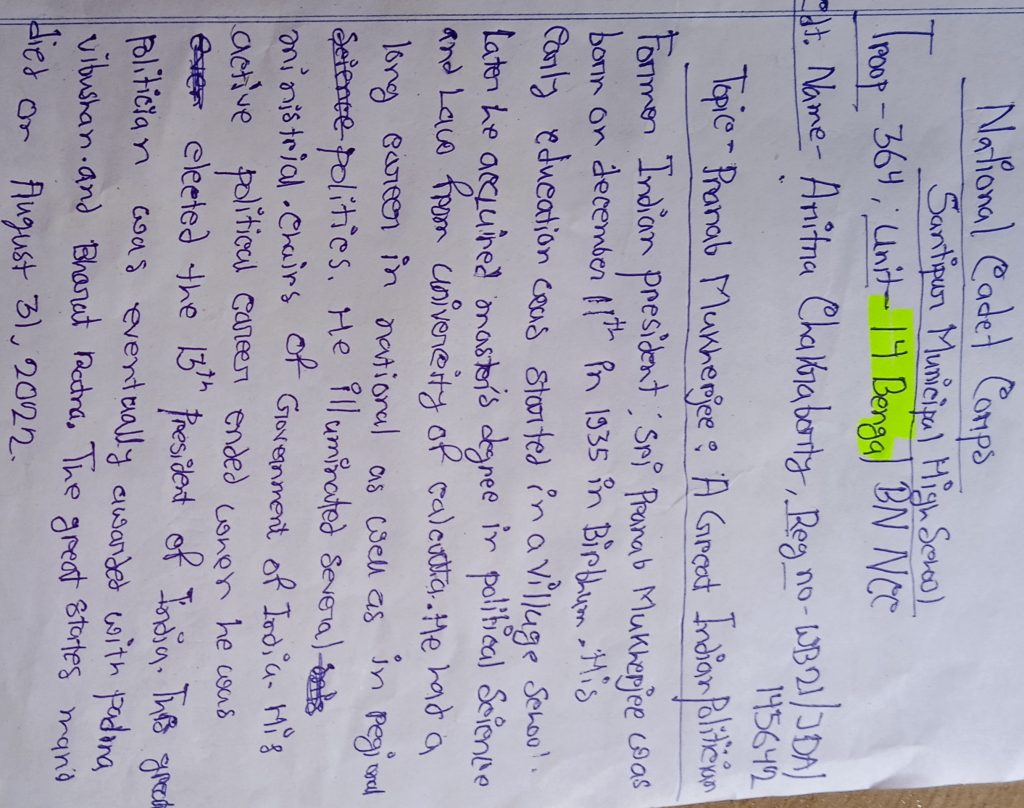 National Cadet Corps
Santipur Municipal High School
Troop - 364, Unit - 14 Bengal BN NCC
cdt. Name - Aritra Chakraborty, Reg no - WB21/JDA/
145642
Topic - Pranab Mukherjee : A Great Indian Politician
Former Indian president ; Sri Pranab Mukherjee was
born on december 11th in 1935 in Birbhum. His
early education was started in a village school.
Later he acquired master's degree in political Science
and Law from univereity of calcutta. He had a
long career in national as well as in regional
politics. He illuminated several
ministrial chairs of Government of India. His
active political career ended when he was
elected the 13th President of India. This great
politician was eventually awarded with padma
vibhushan and Bharat ratna. The great states man
dies on August 31, 2022.